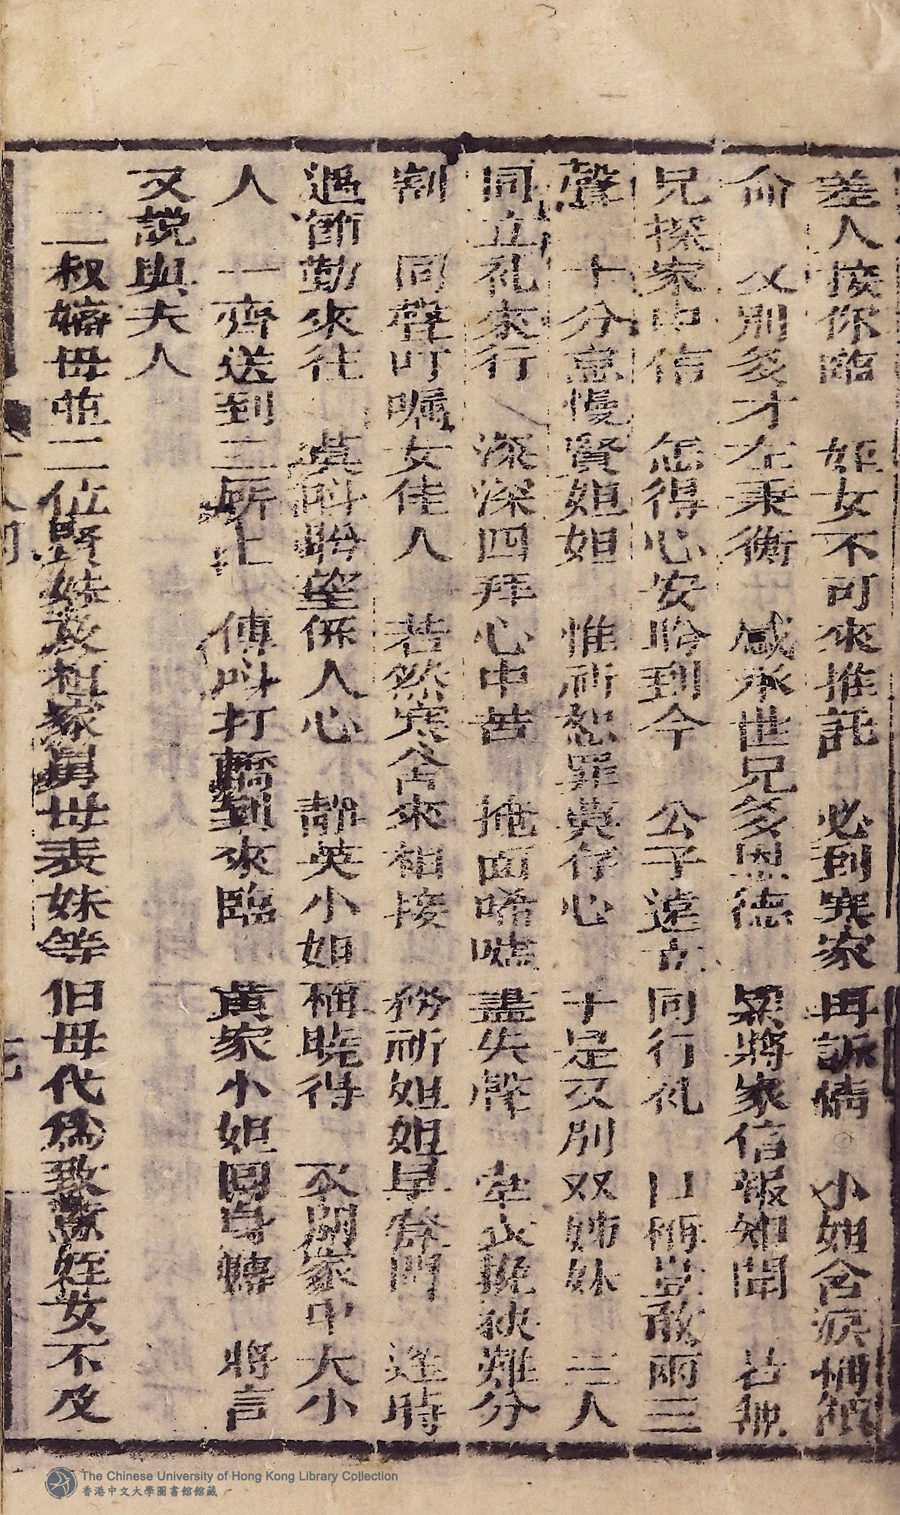 差人接你臨　姪女不可來推託　必到寒家再訴情　小姐含淚悲
命　又別多才左秉衡　感承世兄多恩德　梁將家信報知聞　若
兄探家中信　怎得心安聆到今　公子遠方同行礼　口稱豈敢兩三
聲　十分怠慢賢姐姐　惟祈恕罪莫存心　于是又別双姊妹　三人
同立礼來行　深深四拜心中苦　掩面唏噓盡失聲　牽衣挽袂難分
割　同聲叮囑女佳人　若然寒舍來相接　務祈姐姐早登門　逢時
過節勤來往　莫盼望係人心　静英小姐稱曉得　閤家中大小
人　一齊送到二所上　傳呌打轎到來臨　黃家小姐囬身轉　將言
又說與夫人
二叔嬸母並二位賢妹及桓家舅母表妹等伯母代為致意姪女不及
The Chinese University of Hong Kong Library Collection
香港中文大學圖書館館藏